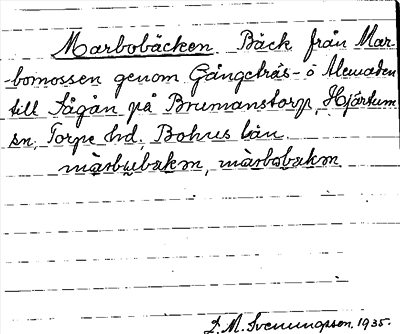 Marbobäcken Bäck från Mar-
bomossen genom Gångeträs- o Alevaden
till Sågån på Brumanstorp, Hjärtum
sn, Torpe hd, Bohus län.
D. M. Svenungsson, 1935.